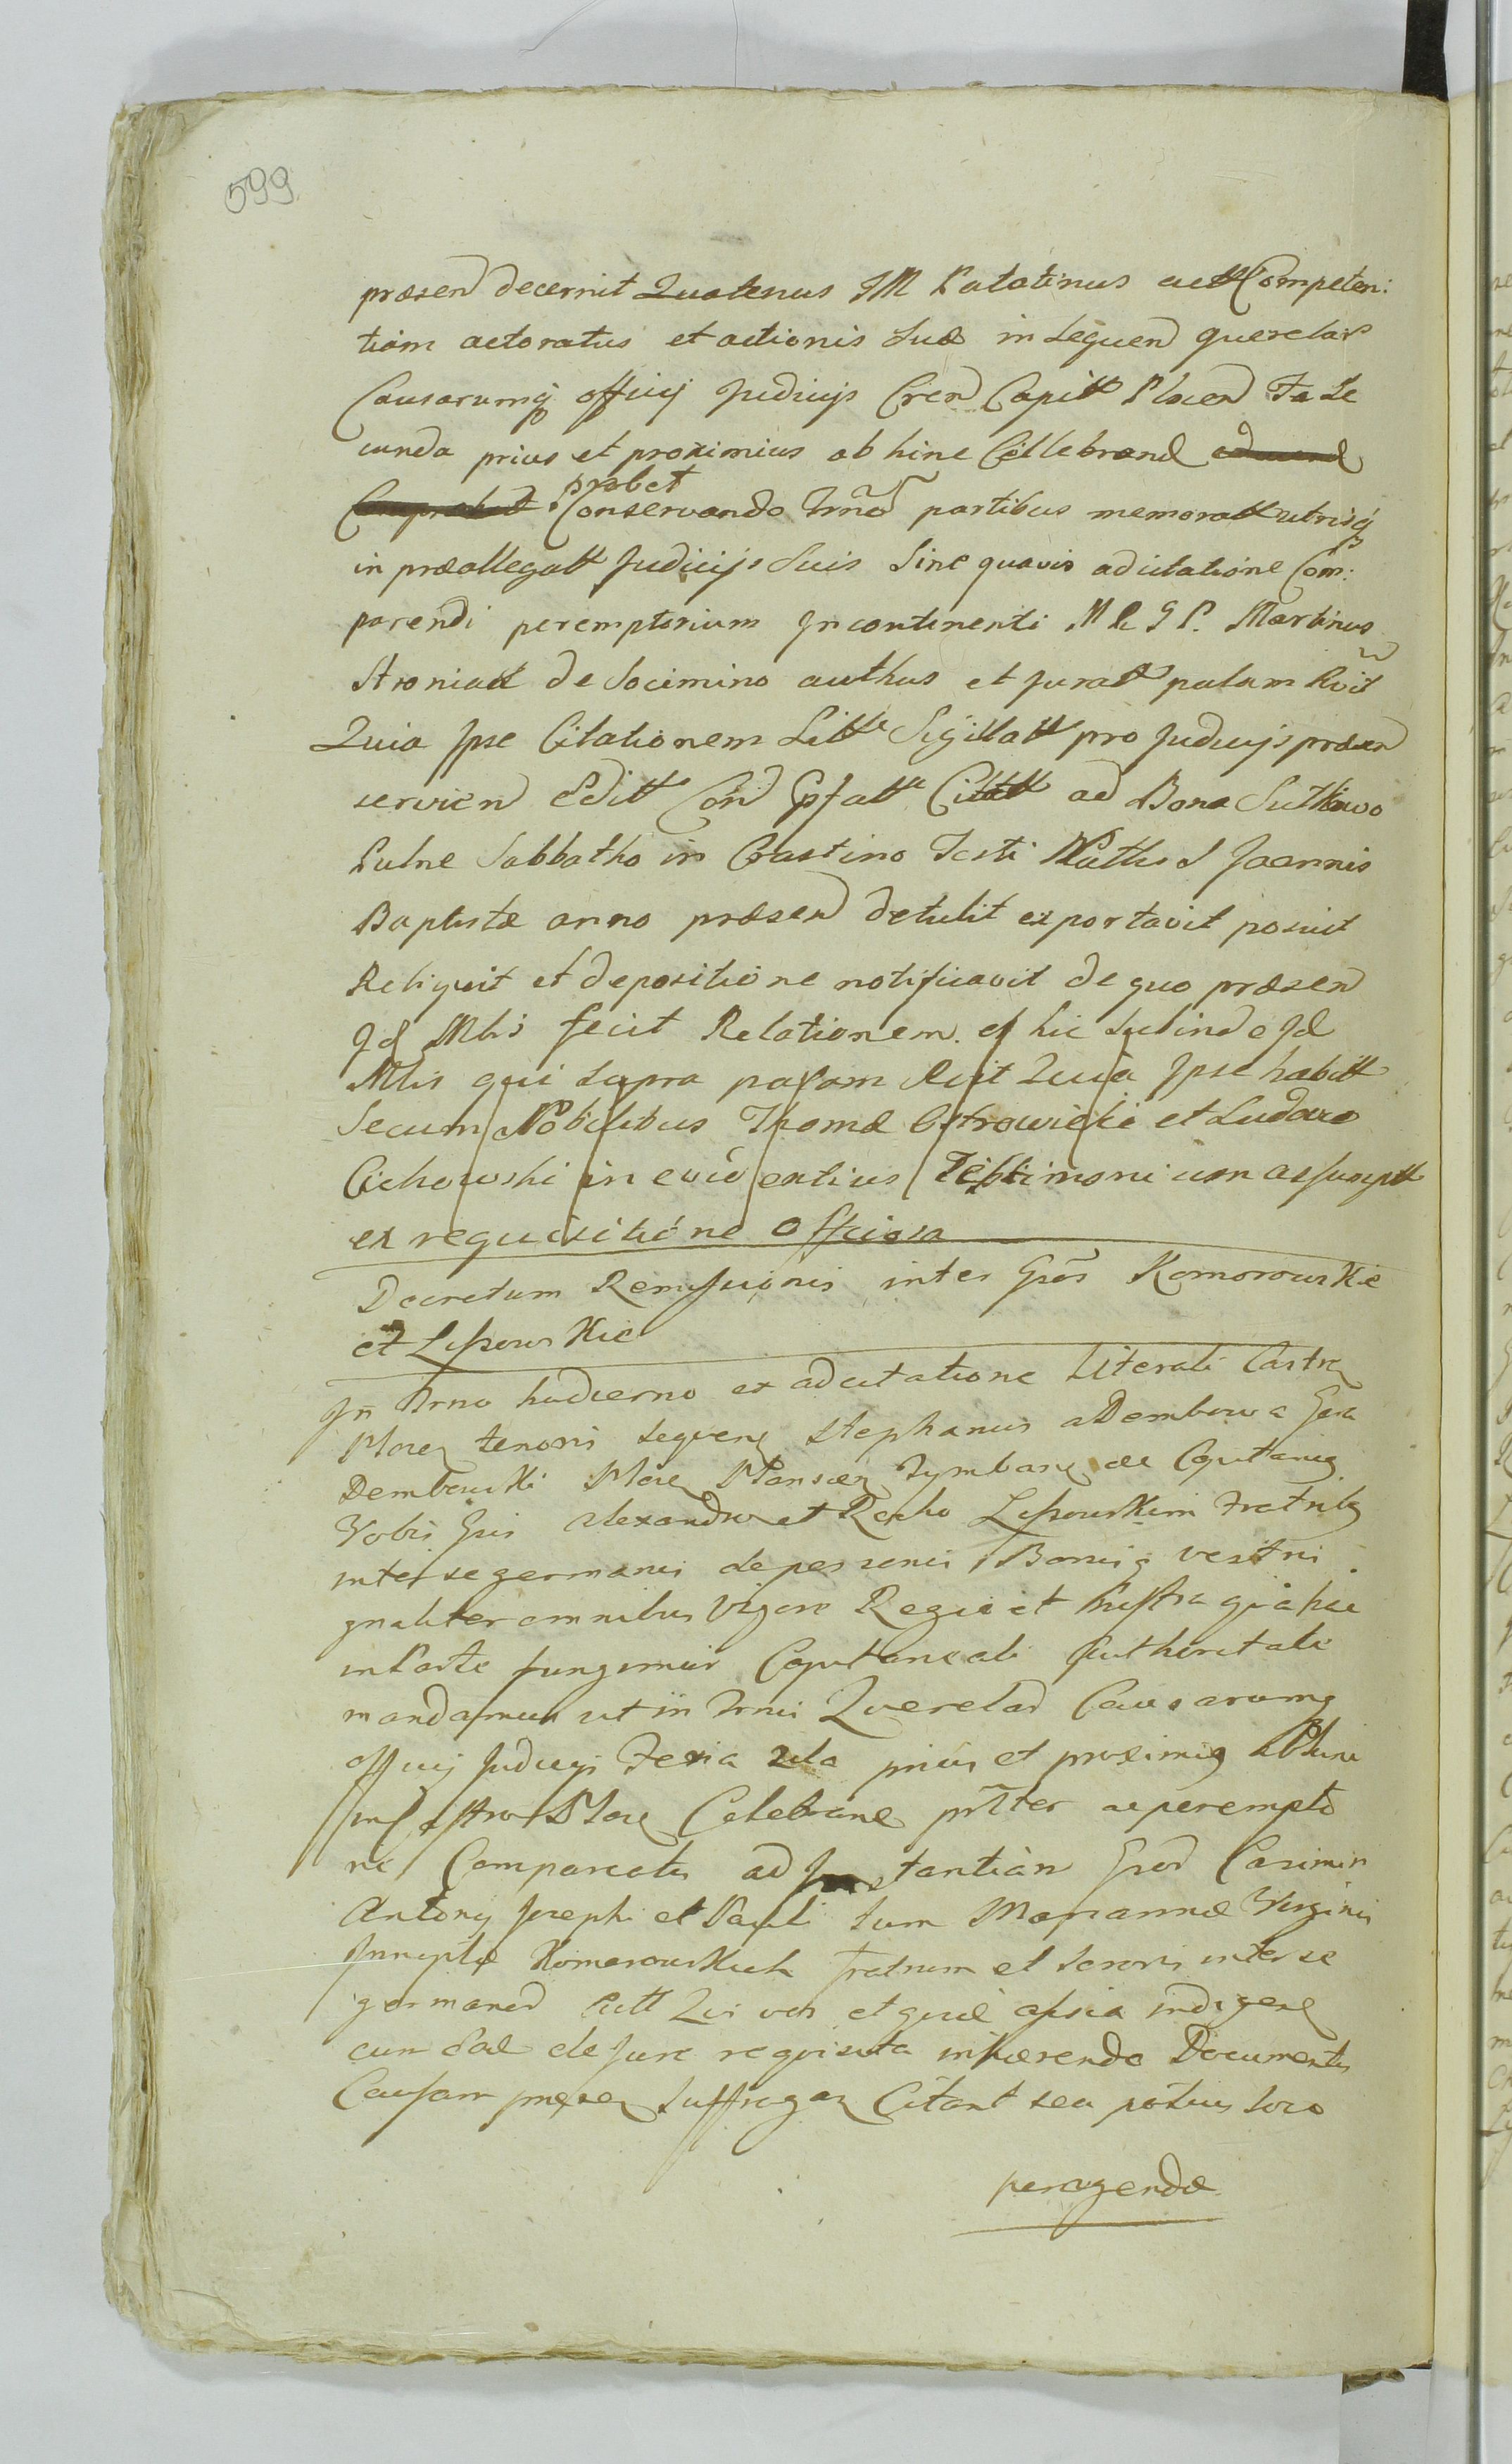 599
præsen decernit Quatenus JM Palatinus aett Competen:
tiam actoratus et actionis Suæ in Seqven querelar
Causarumq officij Judicijs Cren Capitt Plocen Fa Se
cunda prius et proximius ab hinc Cellebrand
probet
Conservando Trnõ partibus memoratt utrisq
in præallegatt Judicijs Suis Sine quavis adcitatione Com:
parendi peremptorium Incontinenti M R G P. Martinus
Stroniatt de Socimino authus et juratt palam Rvit
Quia Ipse Citationem Litt Sigillatt pro Judicijs præsen
servien Editt Con Citatt ad Bona Sutkowo
Pulne Sabbatho in Crastino Festi Natts S Joannis
Baptistæ anno præsen detulit exportavit posuit
Reliquit et depositione notificavit de quo præsen
Jd Mlis fecit Relationem. et hic Subinde Jd
Mlis qui Supra palam Rvit Quia Ipse habitt
Secum Nobilibus Thomæ Ostrowicki et Ludovo
Cichowski in evidentius Testimonium assumptt
ex requisitione Officiosa
Decretum Remissionis inter Gros Komorowskie
et Lissowskie
In Trno hodierno ex adcitatione Literali Castr
Plocen tenoris sequen Stephanus a Dembowa Gora
Dembowski Plocen Tymbarcen Capitaneus
Vobis Gsis Alexandro et Rocho Lissowskim Fratribq
inter se germanis de personis Bonisq vestris
gnaliter omnibus Vigore Regia et nostra qua hac
in Parte fungimur Capitaneali Authoritate
mandamus ut in Trnis Querelar Causarumq
officij Judicijs Feria 2da prius et proximius
in Castro Plocen Celebran pntter ac perempto
rie Compareatis ad Instantiam Gsor Casimiri
Antonij Josephi et Pauli tum Mariannæ Virginis
Innuptæ Komorowskich fratrum et Sororis inter se
germanor Qui vos et quæ
cum de jure requisita inhærendo Documentis
Causam præsen Suffragan Citant seu potius loco
peragendæ